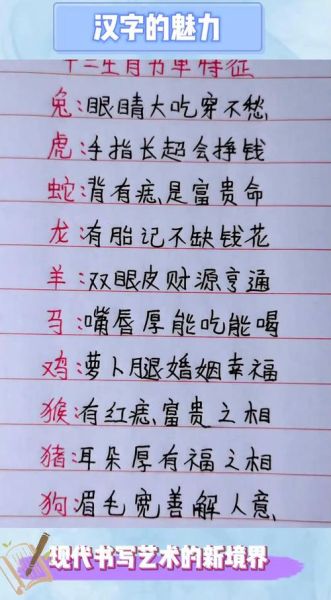 汉字的魅力
十二生肖书单特征
兔:眼睛大吃穿不愁
虎:手指长超会挣钱
蛇:背有痣是富贵命
龙:有胎记不缺钱花
羊:双眼皮财源亨通
马:嘴唇厚能吃能喝
鸡:萝卜腿婚姻幸福
猴:有红痣富贵之相
猪:耳朵厚有福之相
狗:眉毛宽善解人意
现代书写艺术的新境界